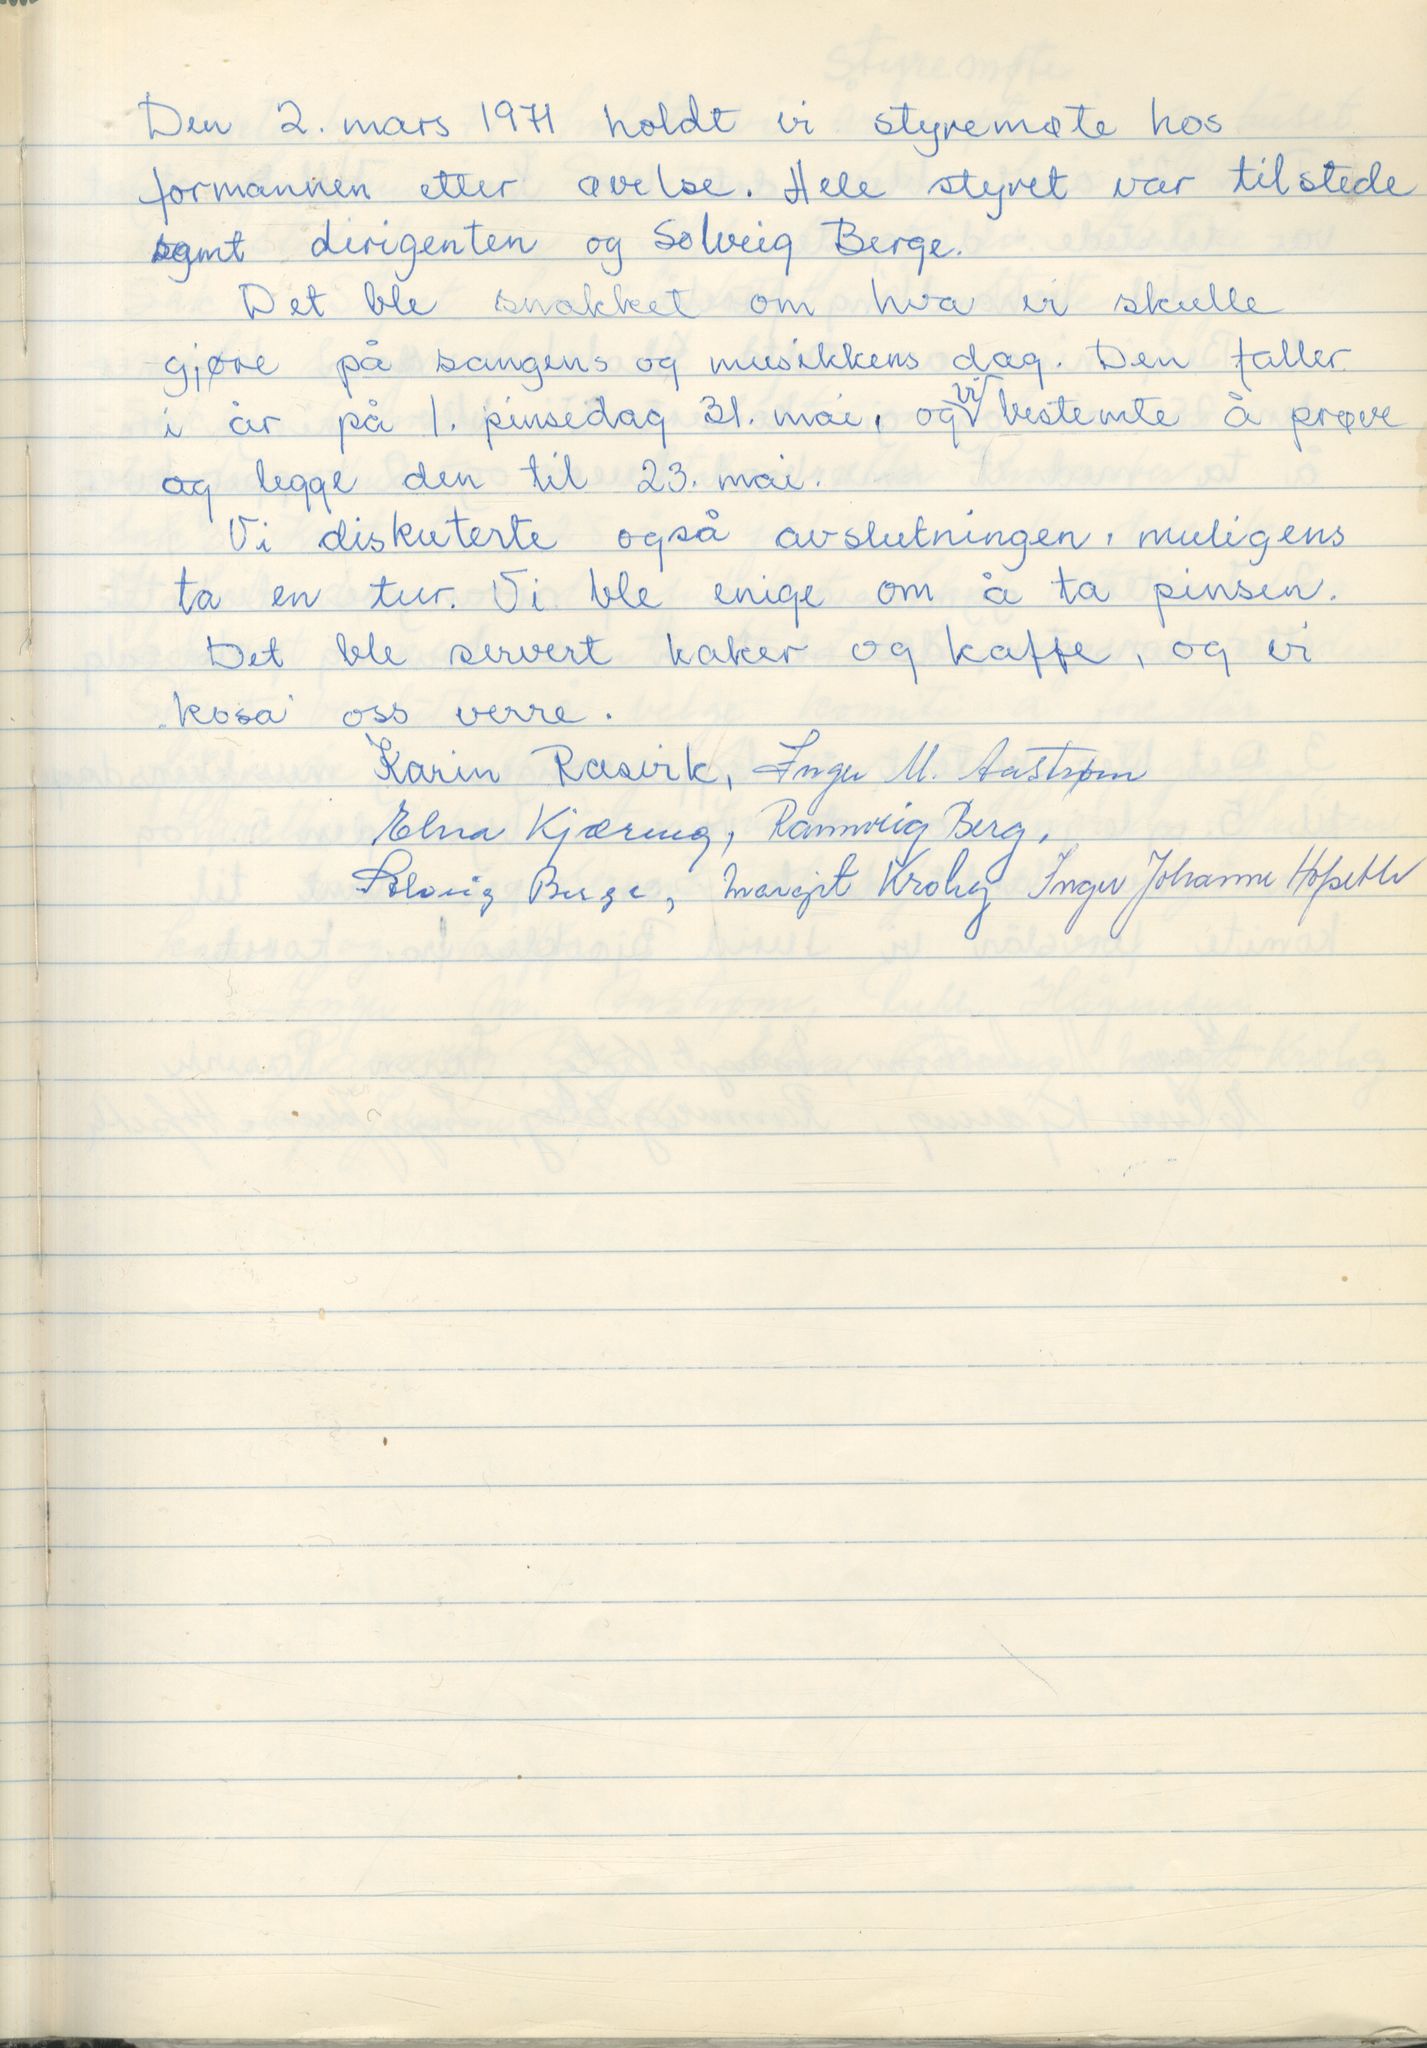 Den 2. mars 1971 holdt vi styremøte hos
formannen etter øvelse. Hele styret var tilstede
samt dirigenten og Solveig Berge.
Det ble snakket om hva vi skulle
gjøre på sangens og musikkens dag. Den faller
i år på 1. pinsedag 31. mai, og vi bestemte å prøve
og legge den til 23. mai.
Vi diskuterte også avslutningen, muligens
ta en tur. Vi ble enige om å ta pinsen.
Det ble servert kaker og kaffe, og vi
kosa oss verre.
Karin Rasvik, Inger M. Aastrøm
Elna Kjæring, Rannveig Berg,
Solveig Berge, Margit Krohg Inger Johanne